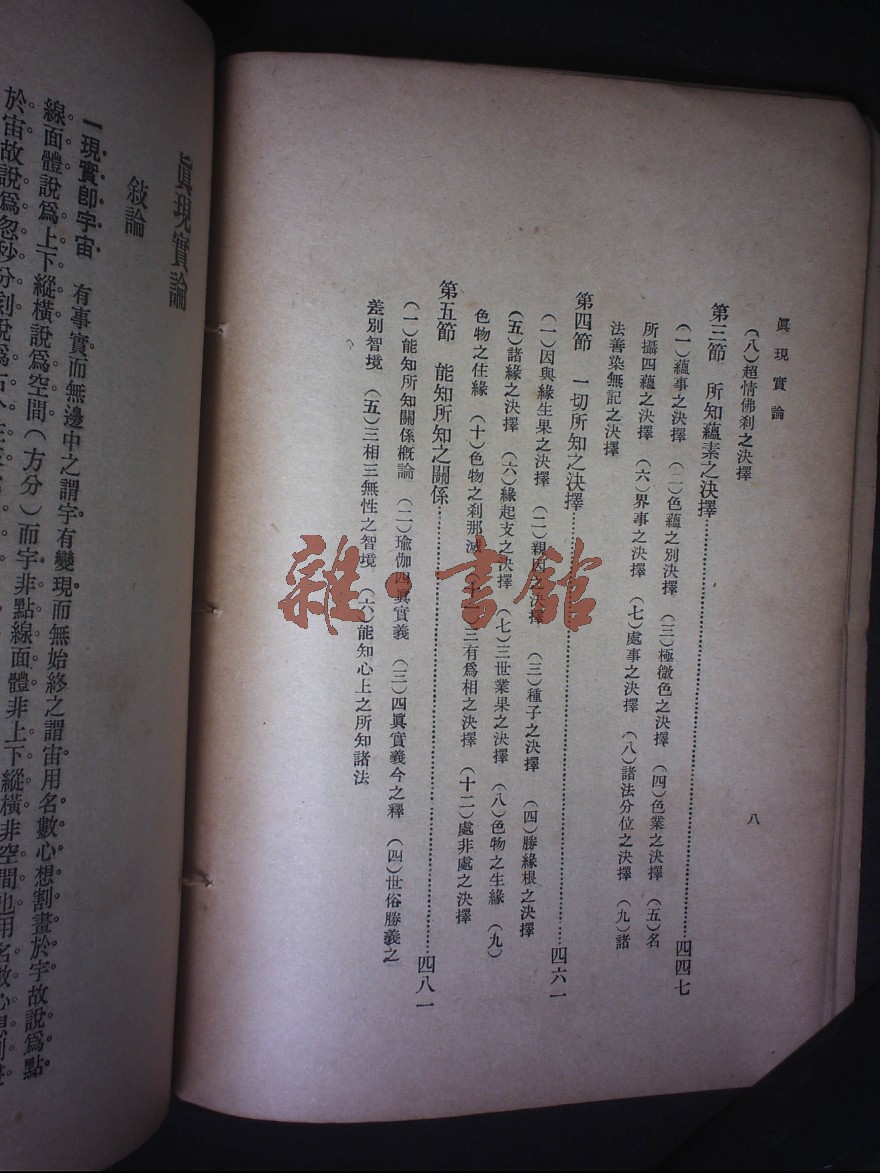 眞現實論
八
（八）超情佛刹之決擇
第三節　所知蘊素之決擇……………四四七
（一）蘊事之決擇　（二）色蘊之別決擇　（三）極微色之決擇　（四）色業之決擇　（五）名
所攝四蘊之決擇　（六）界事之決擇　（七）處事之決擇　（八）諸法分位之決擇　（九）諸
法善染無記之決擇
第四節　一切所知之決擇……………四六一
（一）因與緣生果之決擇　（二）親因之決擇　（三）種子之決擇　（四）勝緣根之決擇
（五）諸緣之決擇　（六）緣起支之決擇　（七）三世業果之決擇　（八）色物之生緣　（九）
色物之住緣　（十）色物之刹那滅　（十一）三有爲相之決擇　（十二）處非處之決擇
第五節　能知所知之關係……………四八一
（一）能知所知關係概論　（二）瑜伽四眞實義　（三）四眞實義今之釋　（四）世俗勝義之
差別智境　（五）三相三無性之智境　（六）能知心上之所知諸法
雜·書館
眞現實論
敍論
一現實卽宇宙　有事實而無邊中之謂宇有變現而無始終之謂宙用名數心想割畫於宇故說爲點
線面體說爲上下縱橫說爲空間（方分）而宇非點線面體非上下縱橫非空間也用名數心想割畫
於宙故說爲忽秒分刻說爲